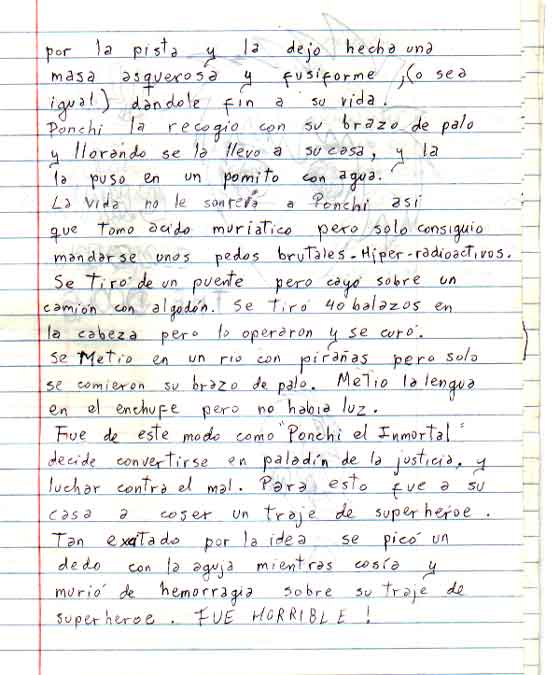 por la pista y la dejo hecha una
masa asquerosa y fusiforme, (o sea
igual) dándole fin a su vida.
Ponchi la recogio con su brazo de palo
y llorando se la llevo a su casa, y la
la puso en un pomito con agua.
La vida no le sonreía a Ponchi asi
que tomo acido muriatico pero solo consiguio
mandarse unos pedos brutales. Hiper-radioactivos.
Se tiró de un puente pero cayó sobre un
camion con algodón. Se tiró 40 balazos en
la cabeza pero lo operaron y se curó.
Se Metio en un rio con pirañas pero solo
se comieron su brazo de palo. Metio la lengua
en el enchufe pero no habia luz.
Fue de este modo como "Ponchi el Inmortal"
decide convertirse en paladín de la justicia, y
luchar contra el mal. Para esto fue a su
casa a coser un traje de superheroe.
Tan exitado por la idea se picó un
dedo con la aguja mientras cosía y
murió de hemorragia sobre su traje de
superheroe. FUE HORRIBLE!